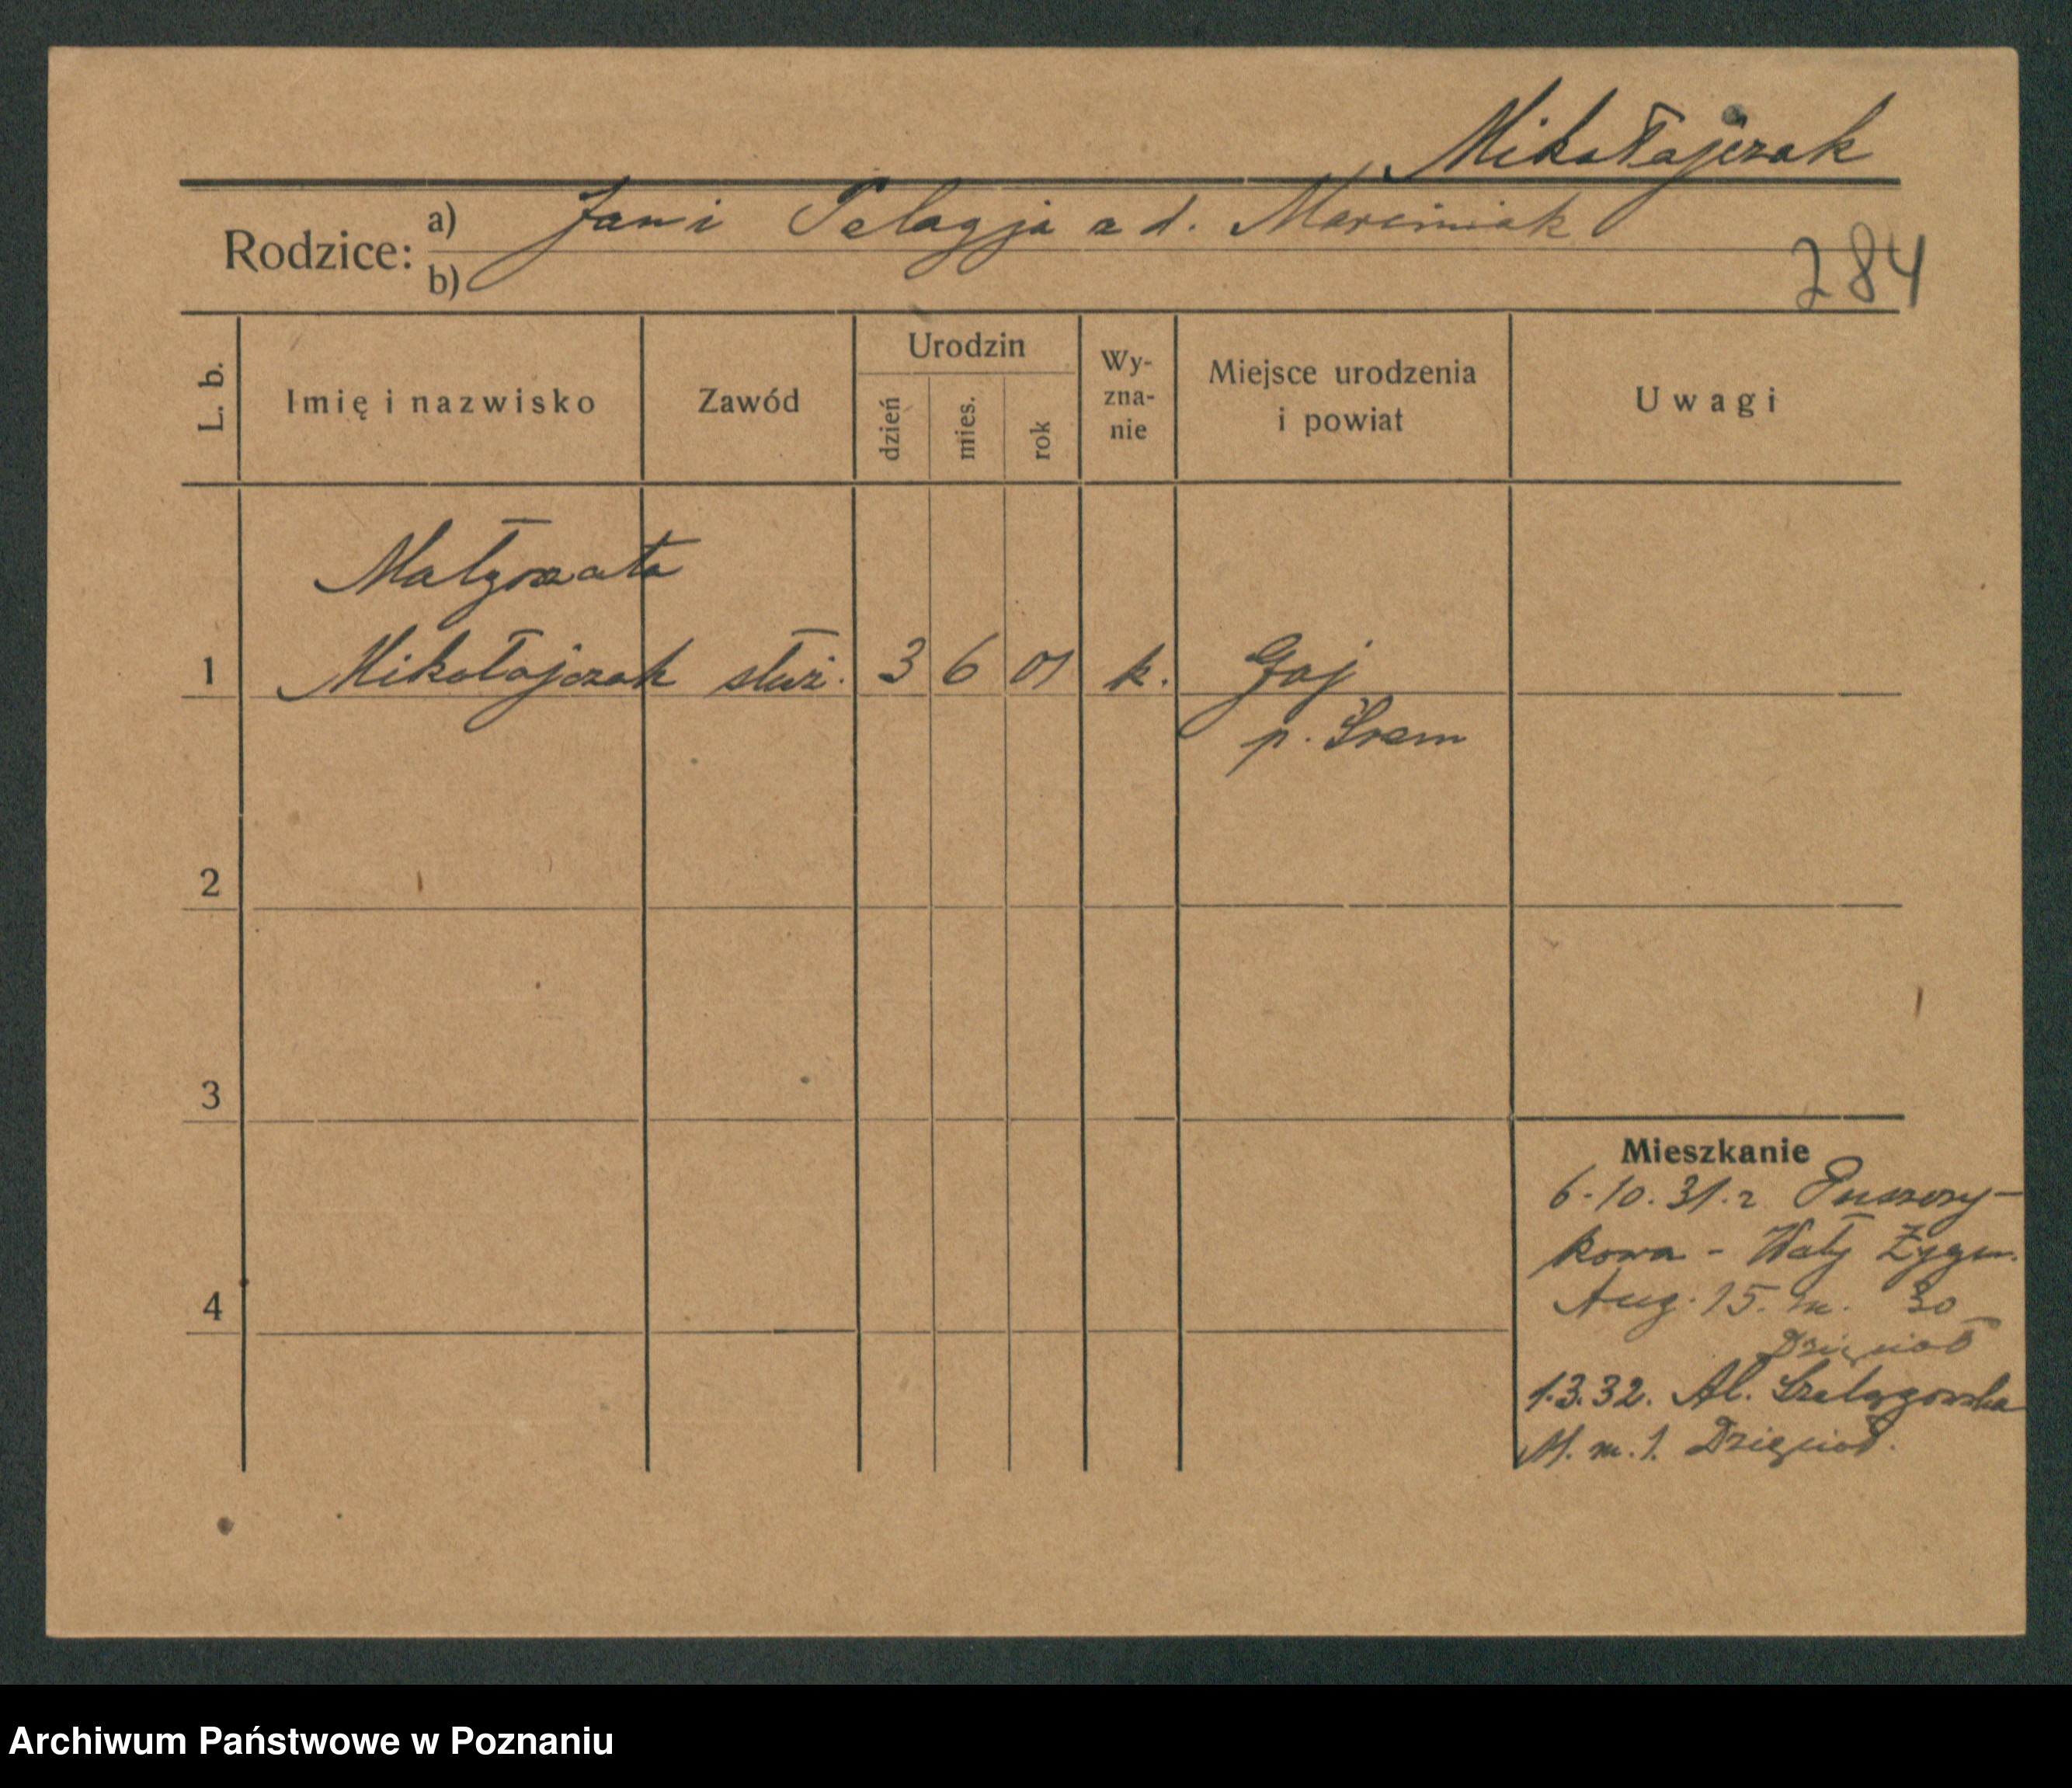 Mikołajczak
Rodzice: a) Jan i Pelagja z d. Marciniak
b)
284
L. b.
Imię i nazwisko
Zawód
Urodzin
dzień
mies.
rok
Wy-
zna-
nie
Miejsce urodzenia
i powiat
Uwagi
Małgorzata
1 Mikołajczak służ. 3 6 01 k. Gaj
p. Śrem
2
3
Mieszkanie
6.10.31.r Puszczy-
kowa - Wały Zygm.
4
Aug. 15. m. 30
1.3.32. Al. Szelągowska
m. 1.
Archiwum Państwowe w Poznaniu